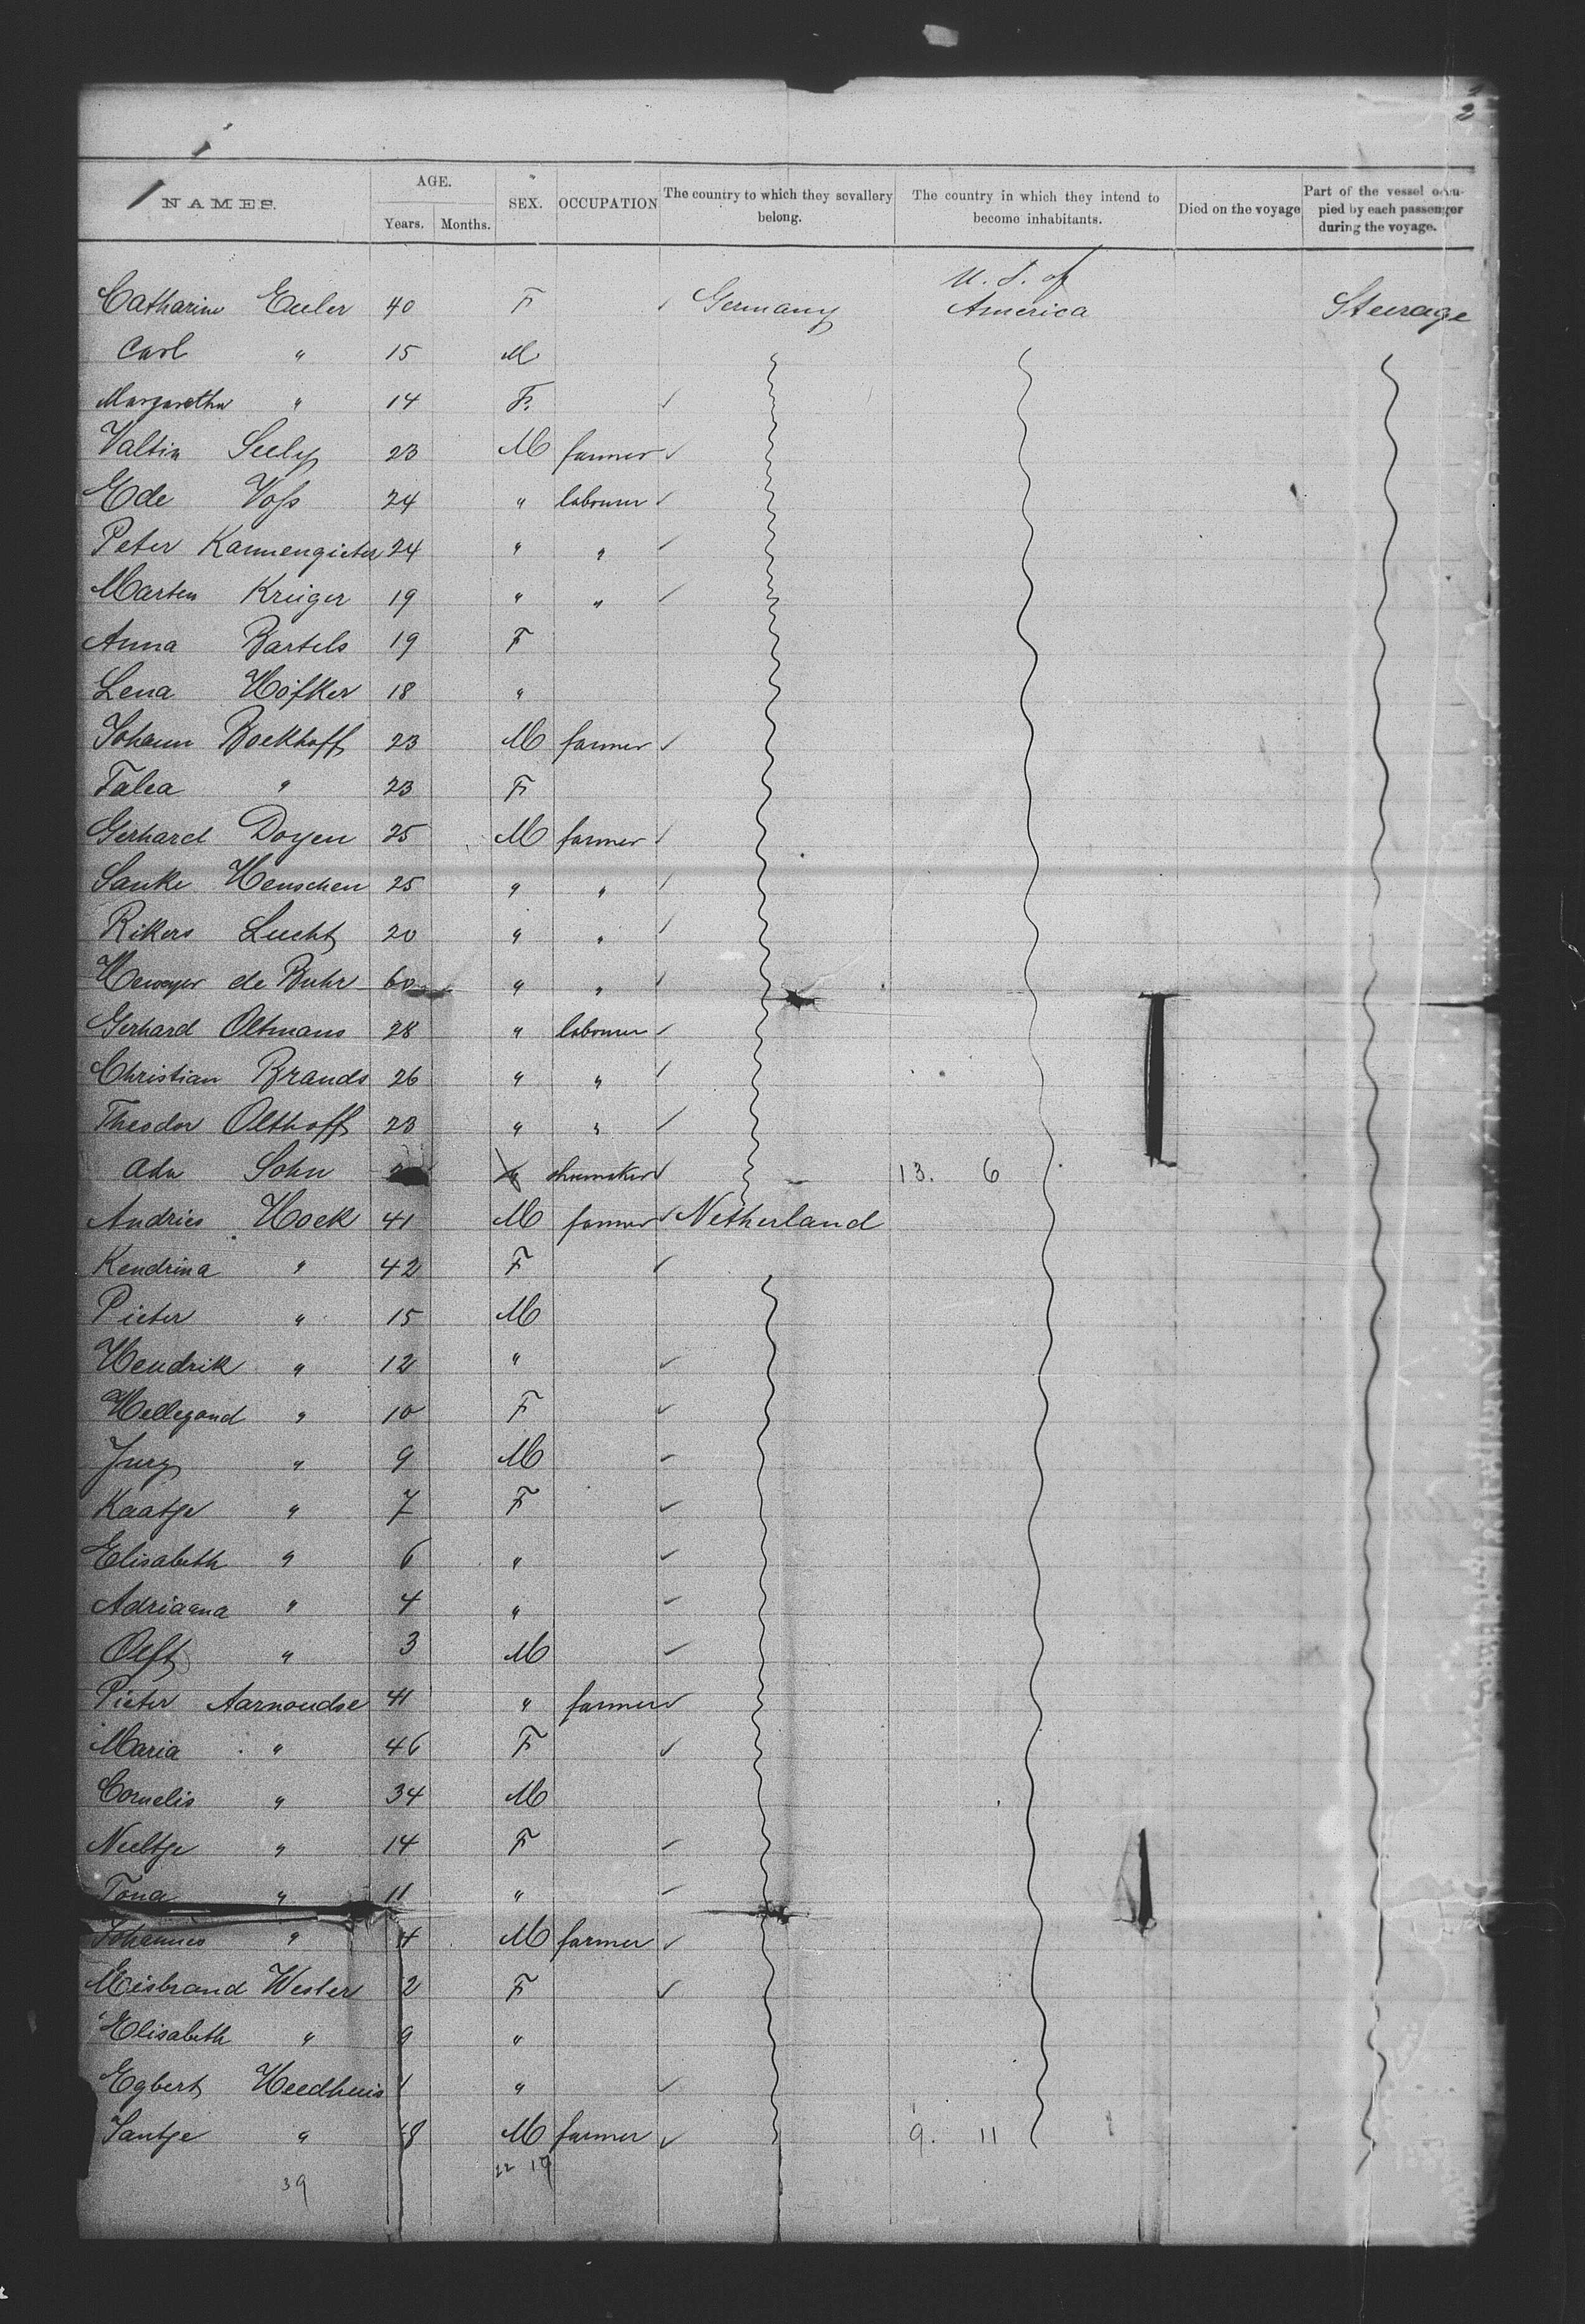 2
NAMES. AGE. SEX. OCCUPATION The country to which they sevallery belong. The country in which they intend to become inhabitants. Died on the voyage Part of the vessel occupied by each passenger during the voyage.
Years. Months.
U. S. of
Catharine Euler 40 F Germany America Steerage
Carl " 15 M
Margaretha " 14 F.
Valtin Seely 23 M farmer
Ede Voss 24 " labourer
Peter Kannengieter 24 " "
Marten Krüger 19 " "
Anna Bartels 19 F
Lena Höfker 18 "
Johann Boekhoff 23 M farmer
Talea " 23 F
Gerhard Doyen 25 M farmer
Sanke Henschen 25 " "
Rikers Lucht 20 " "
de Buhr 60 " "
Gerhard Oltmans 28 " labourer
Christian Brands 26 " "
Theodor Olthoff 23 " "
Ada Sohn shumaker 13. 6
Andries Hoek 41 M farmer Netherland
Kendrina " 42 F
Pieter " 15 M
Hendrik " 12 "
Hellegond " 10 F
Jurg " 9 M
Kaatje " 7 F
Elisabeth " 6 "
Adriaana " 4 "
" 3 M
Pieter Aarnoudse 41 " farmer
Maria " 46 F
Cornelis " 34 M
Neeltje " 14 F
Tona " 11 "
Johannes " 4 M farmer
Meisbrand Wester 2 F
Elisabeth " 9 "
Egbert Heedhuis 1 "
Jantje " 8 M farmer 9. 11
22 19
39